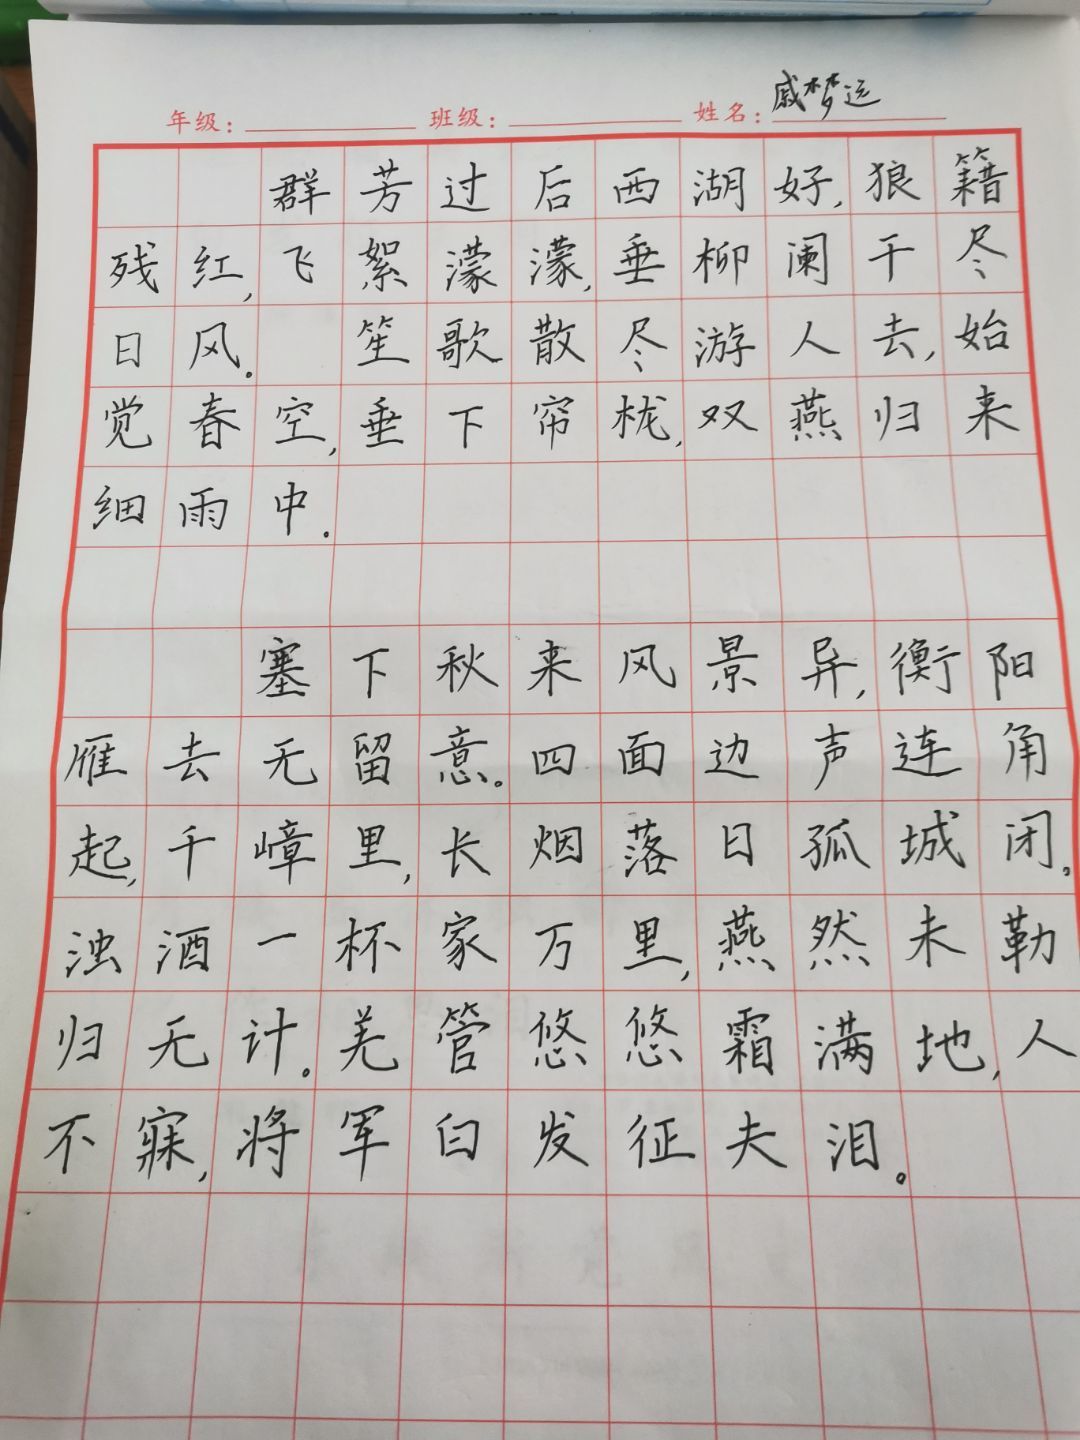 年级： 班级： 姓名：戚梦远
群芳过后西湖好,狼籍
残红,飞絮濛濛,垂柳阑干尽
日风。 笙歌散尽游人去,始
觉春空,垂下帘栊,双燕归来
细雨中.
塞下秋来风景异,衡阳
雁去无留意。四面边声连角
起,千嶂里,长烟落日孤城闭。
浊酒一杯家万里,燕然未勒
归无计。羌管悠悠霜满地,人
不寐,将军白发征夫泪。